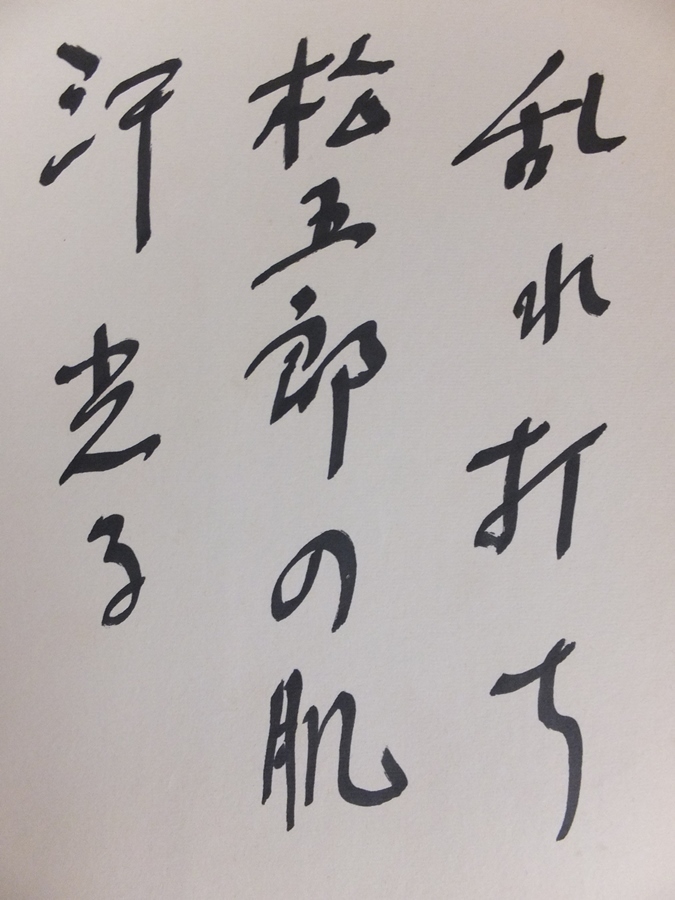 乱れ打ち
松五郎の肌
汗 光子